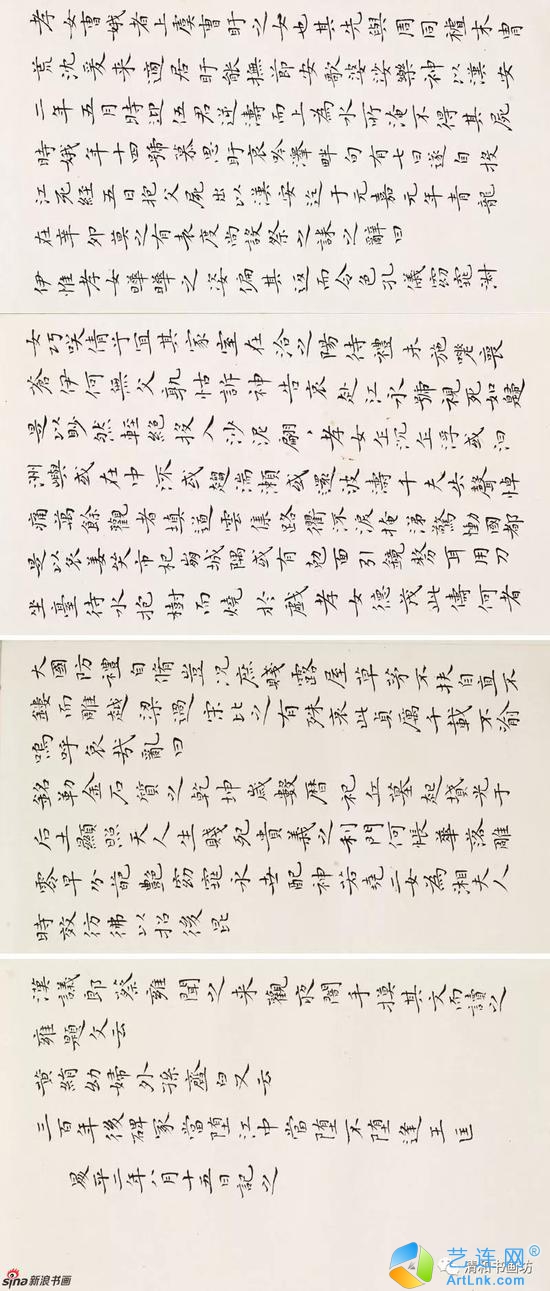 孝女曹娥者上虞曹盱之女也其先與周同祖末冑
荒沈爰来適居盱能撫節安歌婆娑樂神以漢安
二年五月時迎伍君逆濤而上為水所淹不得其屍
時娥年十四號慕思盱哀吟澤畔旬有七日遂自投
江死經五日抱父屍出以漢安迄于元嘉元年青龍
在辛卯莫之有表度尚設祭之誄之辭曰
伊惟孝女曄曄之姿偏其返而令色孔儀窈窕淑
女巧咲倩兮宜其家室在洽之陽待禮未施嗟喪
蒼伊何無父孰怙訴神告哀赴江永號視死如歸
是以眇然輕絕投入沙泥翩、孝女乍沉乍浮或泊
洲嶼或在中流或趨湍瀨或還波濤千夫失聲悼
痛萬餘觀者填道雲集路衢流淚掩涕驚慟國都
是以哀姜哭市杞崩城隅或有剋面引鏡剺耳用刀
坐臺待水抱樹而燒於戲孝女德茂此儔何者
大國防禮自脩豈况庶賤露屋草茅不扶自直不
鏤而雕越梁過宋比之有殊哀此貞厲千載不渝
嗚呼哀哉亂曰
銘勒金石質之乾坤歲數曆祀丘墓起墳光于
后土顯照天人生賤死貴義之利門何悵華落雕
零早分葩艷窈窕永世配神若堯二女為湘夫人
時效彷彿以招後昆
漢議郎蔡雍聞之来觀夜闇手摸其文而讀之
雍題文云
黃絹幼婦外孫齏臼又云
三百年後碑冢當堕江中當堕不堕逢王匡
昇平二年八月十五日記之
sina新浪书画
清和书画坊
艺连网®
ArtLnk.com